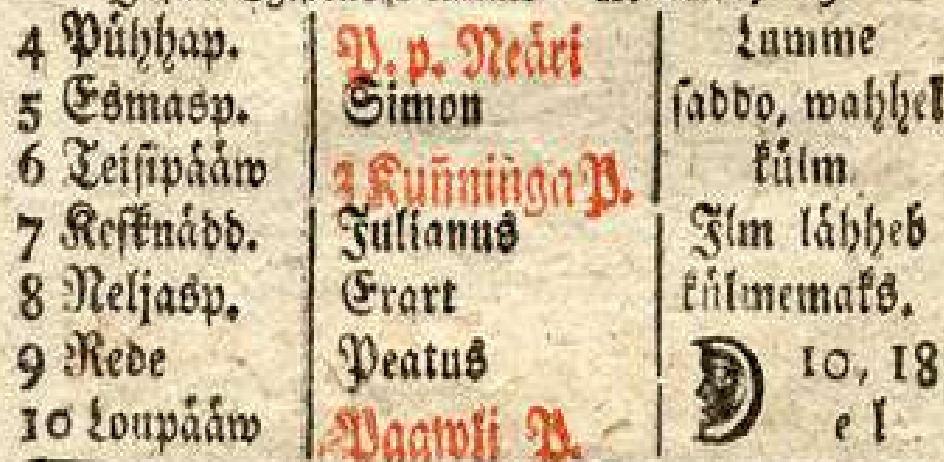 4 Pühhap. P. p. Neäri Lumme
5 Esmasp. Simon saddo, wahhel
6 Teisipääw 3 Kuñninga P. külm
7 Kesknädd. Julianus Ilm lähheb
8 Neljasp. Erart külmemaks.
9 Rede Peatus 10, 18
10 Loupääw Paawli P. e l